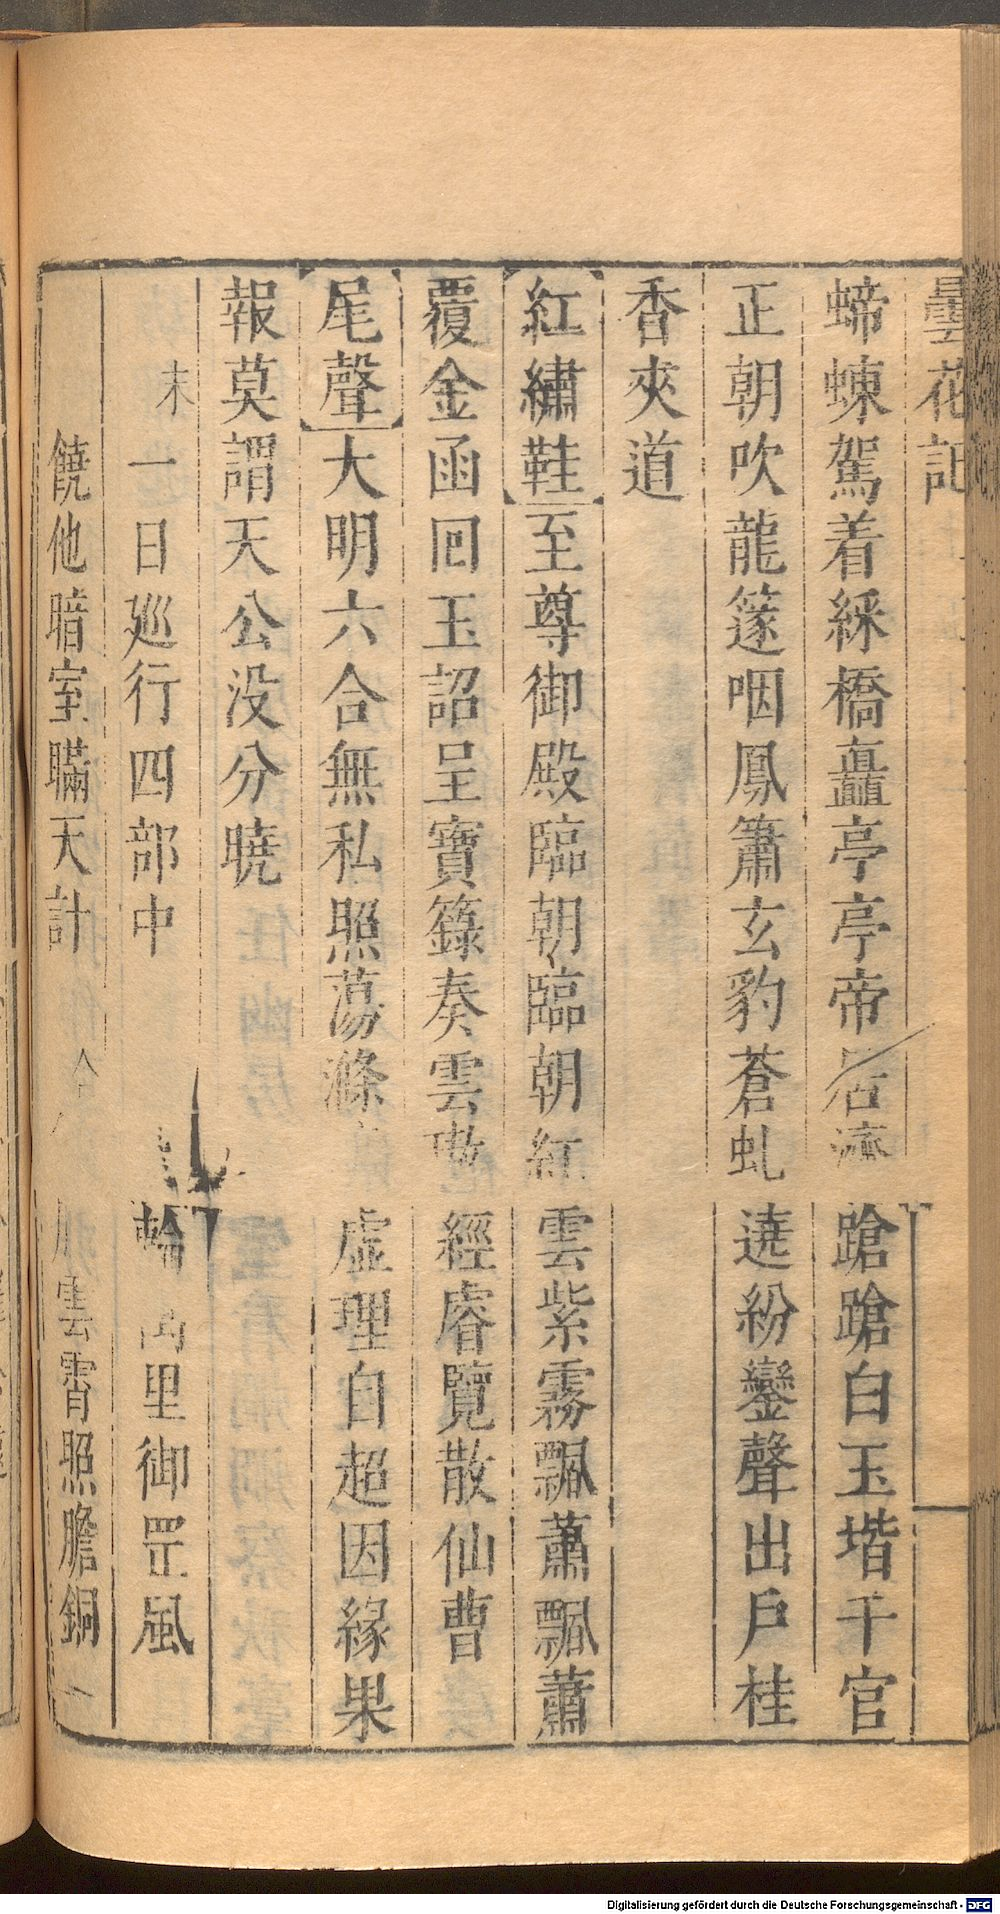 曇花記
蝃蝀駕着綵橋矗亭亭帝 蹌蹌白玉堦千官
正朝吹龍篴咽鳳簫玄豹蒼虬遶紛鑾聲出戶桂
香夾道
紅繡鞋至尊御殿臨朝臨朝紅雲紫霧飄蕭飄蕭
覆金函回玉詔呈寶籙奏雲 經睿覽散仙曹
尾聲大明六合無私照蕩滌 虛理自超因緣果
報莫謂天公没分曉
末 一日廵行四部中 輪 里御罡風
饒他暗室瞞天計 雲霄照膽銅
Digitalisierung gefördert durch die Deutsche Forschungsgemeinschaft - DFG